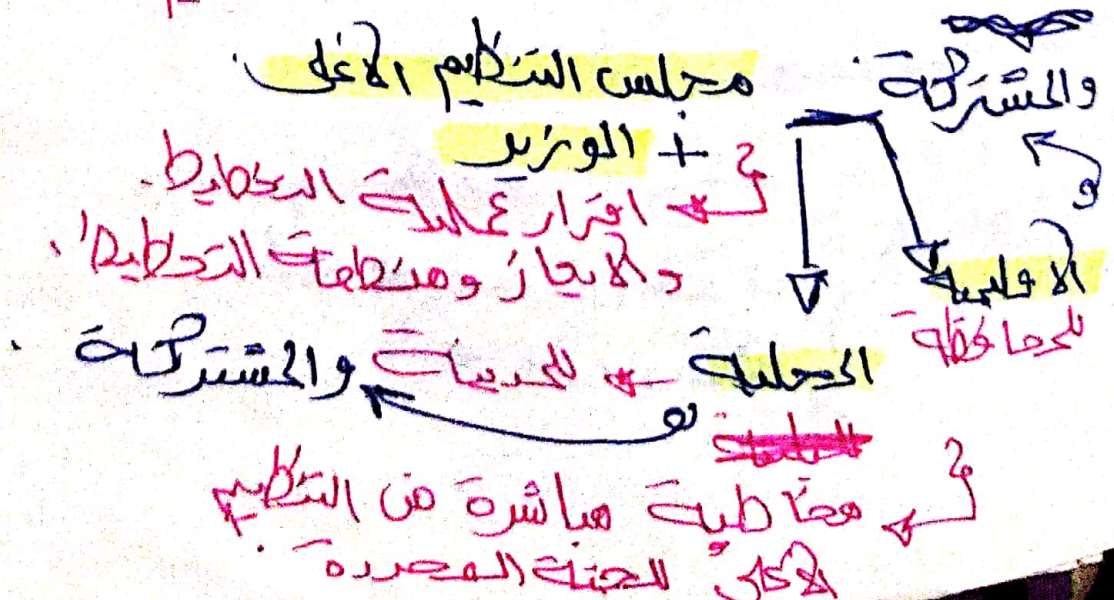 والمشتركة
مجلس التنظيم الأعلى
+ الوزير
اقرار عملية التخطيط.
والايعاز ومنطقة التخطيط.
الاقليمية
للمحافظة
المحلية ← للمدينة والمشتركة
مخاطبة مباشرة من التنظيم
الأعلى للجنة المحددة.